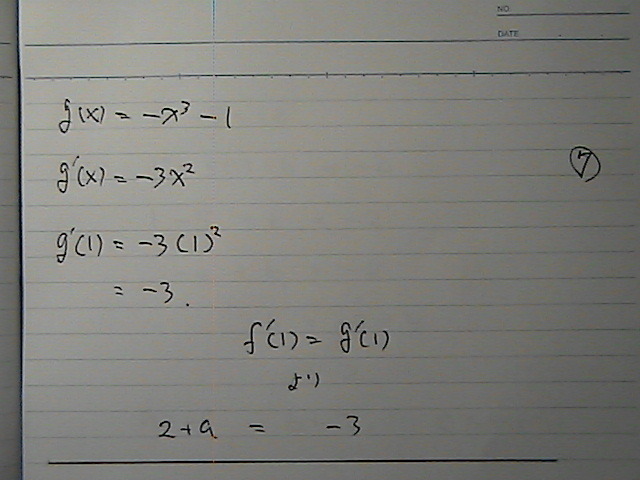 NO.
DATE
g(x) = -x³ - 1
g'(x) = -3x²
⑦
g'(1) = -3(1)²
= -3.
f'(1) = g'(1)
より
2+a = -3